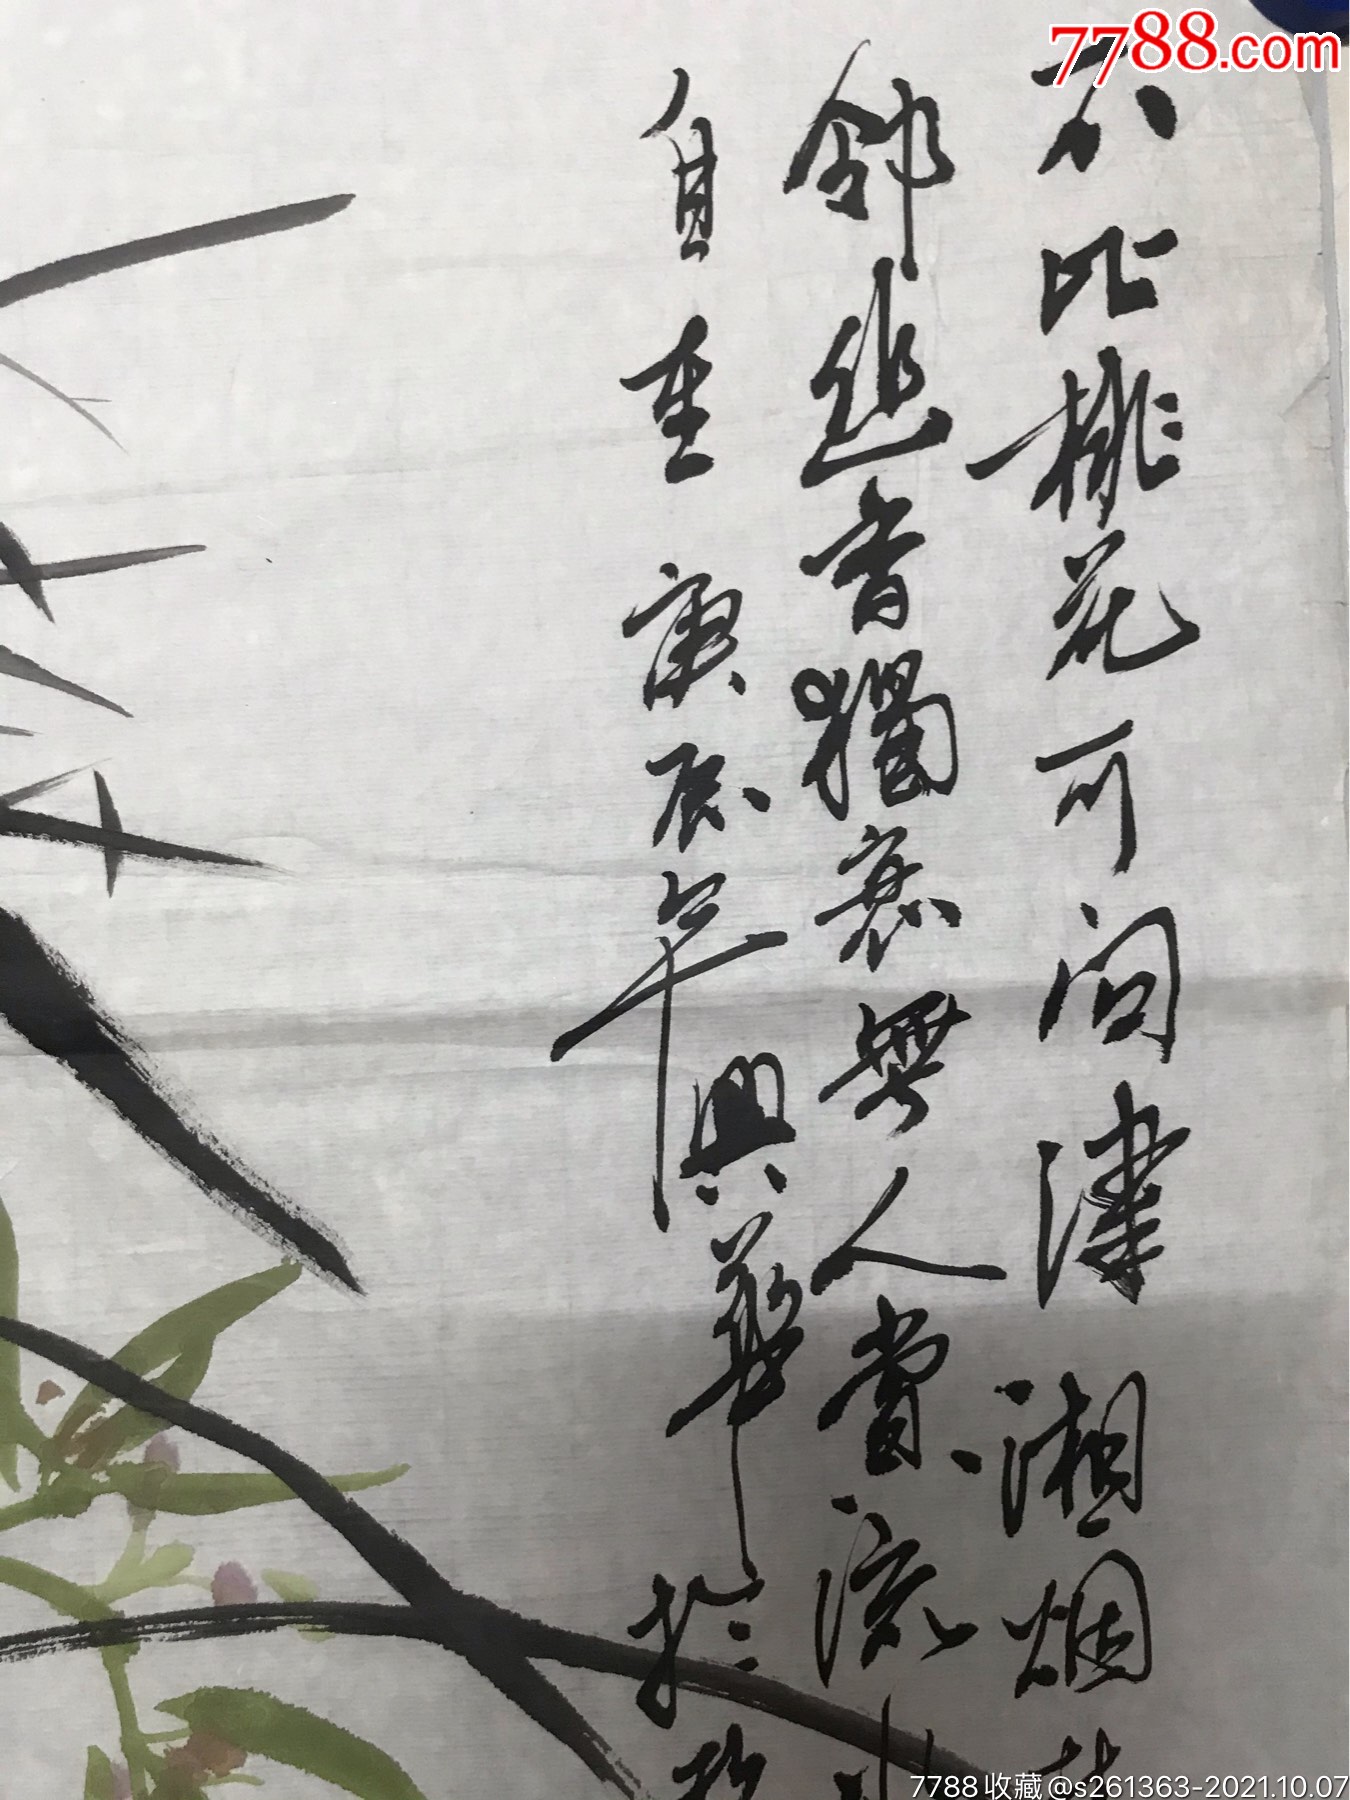 7788.com
不比桃花可问津湘烟
邻幽香獨無人賞流
自重 庚辰年興華於
7788收藏@s261363-2021.10.07